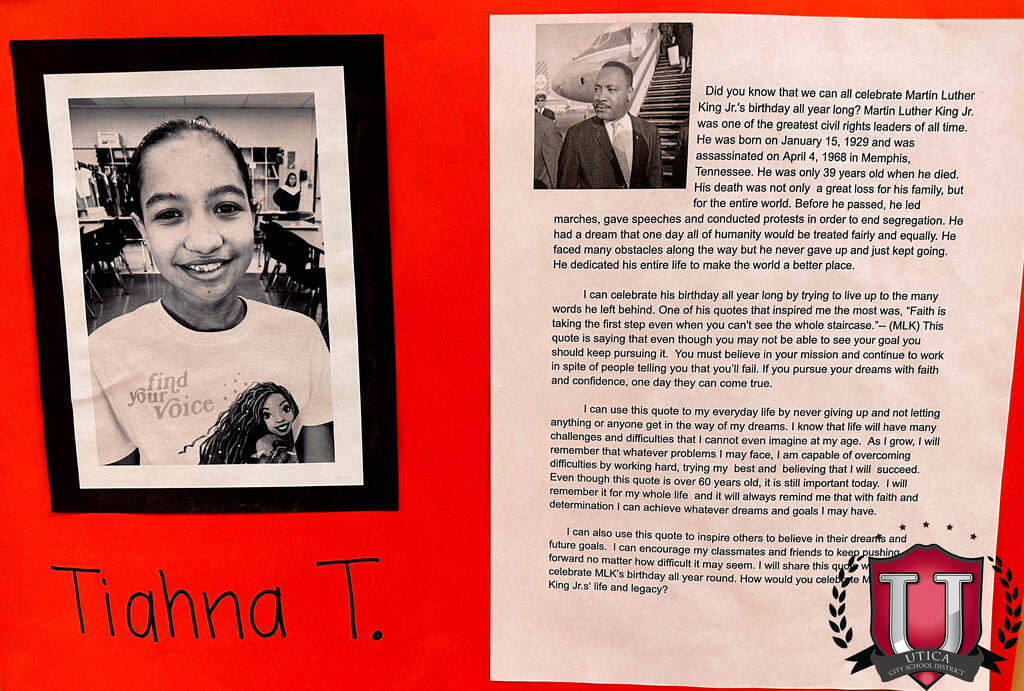 find
your
voice
Tiahna T.
Did you know that we can all celebrate Martin Luther
King Jr.'s birthday all year long? Martin Luther King Jr.
was one of the greatest civil rights leaders of all time.
He was born on January 15, 1929 and was
assassinated on April 4, 1968 in Memphis,
Tennessee. He was only 39 years old when he died.
His death was not only a great loss for his family, but
for the entire world. Before he passed, he led
marches, gave speeches and conducted protests in order to end segregation. He
had a dream that one day all of humanity would be treated fairly and equally. He
faced many obstacles along the way but he never gave up and just kept going.
He dedicated his entire life to make the world a better place.
I can celebrate his birthday all year long by trying to live up to the many
words he left behind. One of his quotes that inspired me the most was, "Faith is
taking the first step even when you can't see the whole staircase."-- (MLK) This
quote is saying that even though you may not be able to see your goal you
should keep pursuing it. You must believe in your mission and continue to work
in spite of people telling you that you'll fail. If you pursue your dreams with faith
and confidence, one day they can come true.
I can use this quote to my everyday life by never giving up and not letting
anything or anyone get in the way of my dreams. I know that life will have many
challenges and difficulties that I cannot even imagine at my age. As I grow, I will
remember that whatever problems I may face, I am capable of overcoming
difficulties by working hard, trying my best and believing that I will succeed.
Even though this quote is over 60 years old, it is still important today. I will
remember it for my whole life and it will always remind me that with faith and
determination I can achieve whatever dreams and goals I may have.
I can also use this quote to inspire others to believe in their dreams and
future goals. I can encourage my classmates and friends to keep pushing
forward no matter how difficult it may seem. I will share this quote
celebrate MLK's birthday all year round. How would you celebrate
King Jr.s' life and legacy?
U
UTICA
CITY SCHOOL DISTRICT